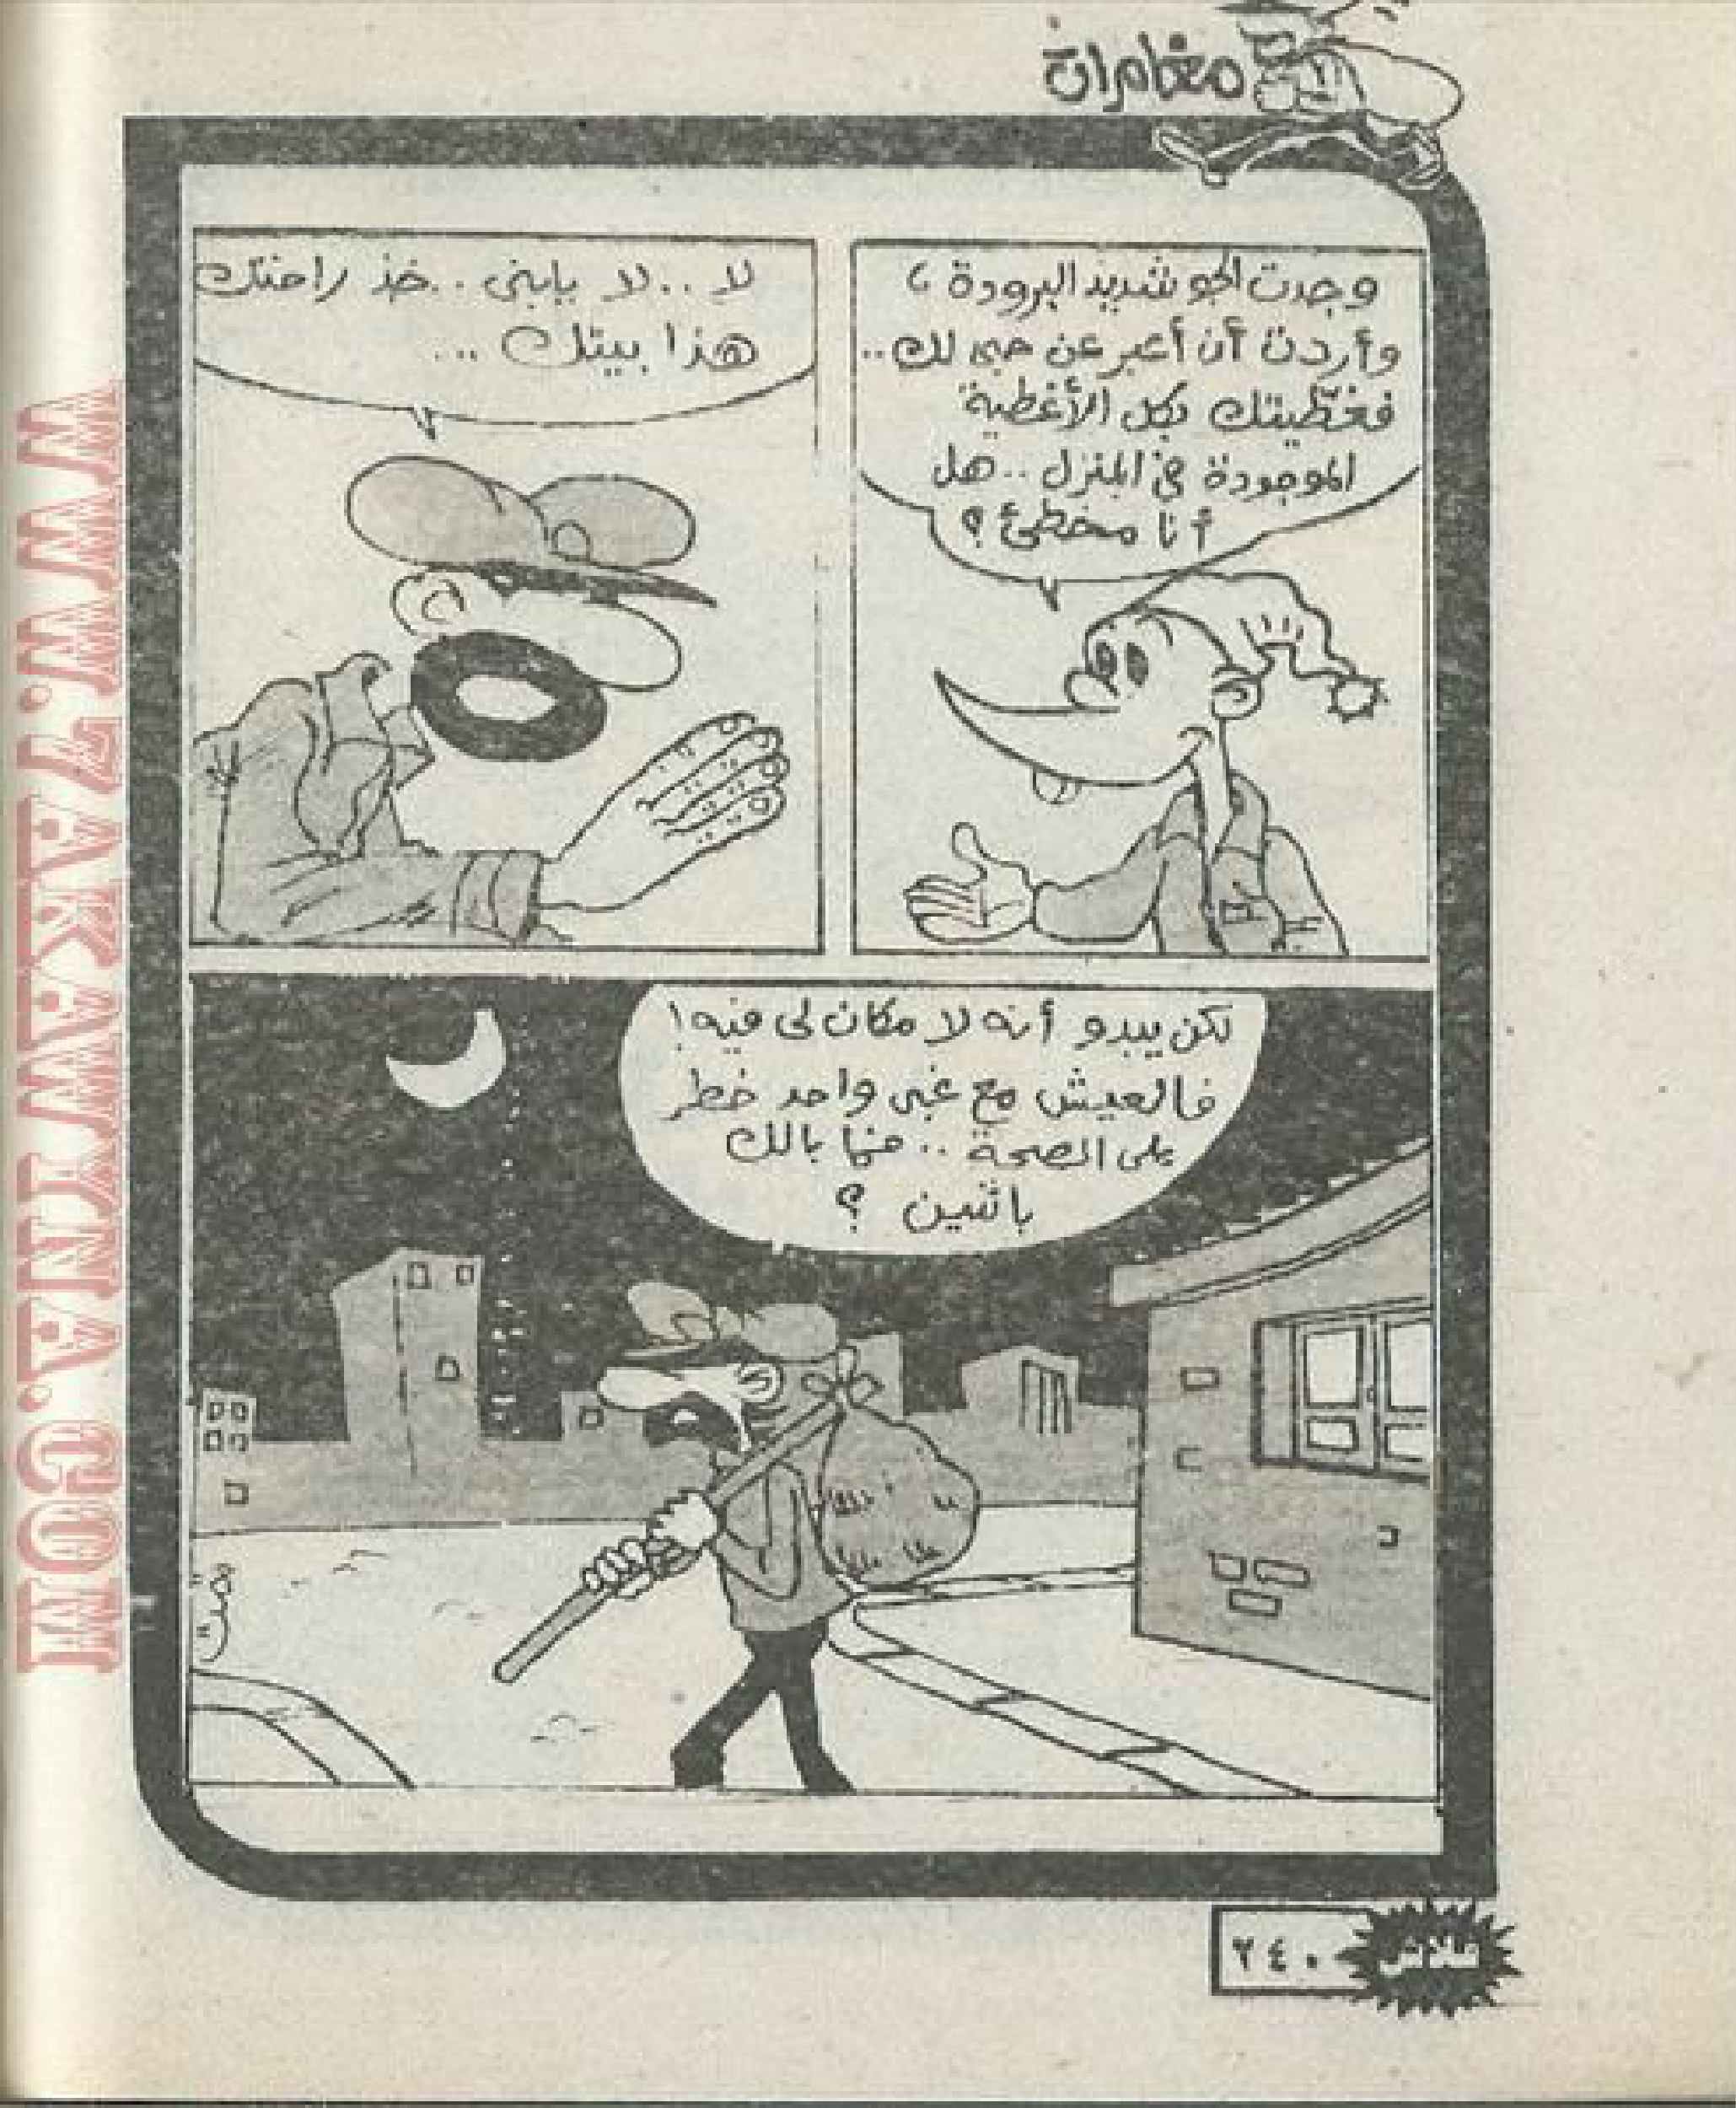 مغامرات
وجدت الجو شديد البرودة ،
وأردت أن أعبر عن حبى لك..
فغطيتك بكل الأغطية
الموجودة فى المنزل .. هل
أنا مخطئ ؟
لا .. لا يابنى .. خذ راحتك
هذا بيتك ...
لكن يبدو أنه لا مكان لى فيه !
فالعيش مع غبى واحد خطر
على الصحة .. فما بالك
باثنين ؟
فلاش
٢٤٠
WWW.7AKAWINA.COM